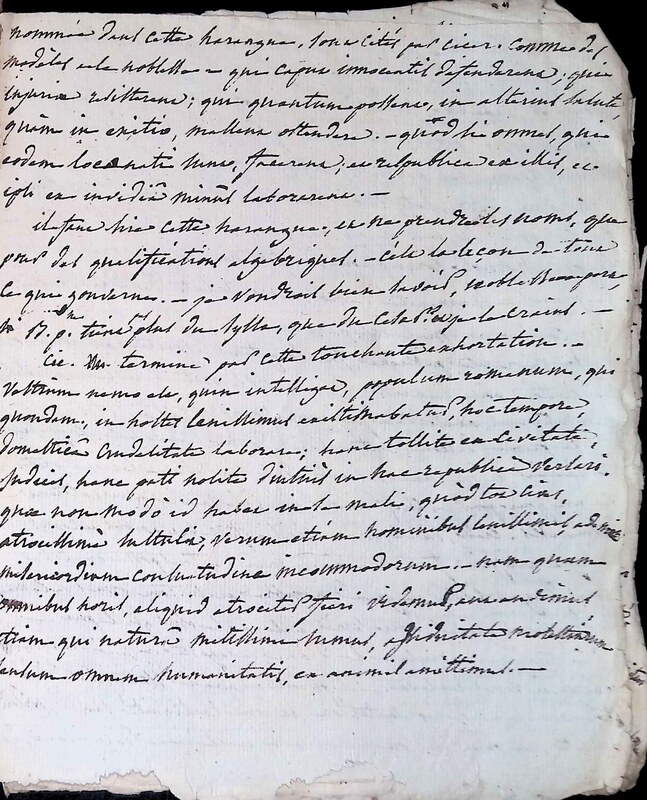 nommée dans cette harangue, sont cités par cicer. comme des
modèles de la noblesse - qui capua innocentis defenderunt; qui
injuriæ restiterunt; qui quantum possent, in alterius salute,
quàm in exitio, malluerunt ostendere. - quod si omnes, qui
eodem loco nati sunt, facerent, et respublica ex illis, et
ipsi ex invidiâ minus laborarent. -
il faut lire cette harangue, et ne prendre les noms, que
pour des qualifications algébriques. - c'est la leçon de tout
ce qui gouverne. - je voudrais bien savoir, si noble Bonaparte,
si B. p. tient plus de sylla, que de César. et je le crains. -
cic. termine par cette touchante exhortation. -
vestrum nemo est, quin intelligat, populum romanum, qui
quondam, in hostes lenissimus existimabatur, hoc tempore,
domesticâ crudelitate laborare; hanc tollite ex civitate,
judices, hanc pati nolite diutius in hac republicâ versari.
quæ non modò id habet in se mali, quòd tot cives,
atrocissimè sustulit, verum etiam hominibus lenissimis, ademit
misericordiam consuetudine incommodorum. - nam quum
omnibus horis, aliquid atrociter fieri videmus, aut audimus
etiam qui naturâ mitissimi sumus, assiduitate molestiarum
sensum omnem humanitatis, ex animis amittimus. -